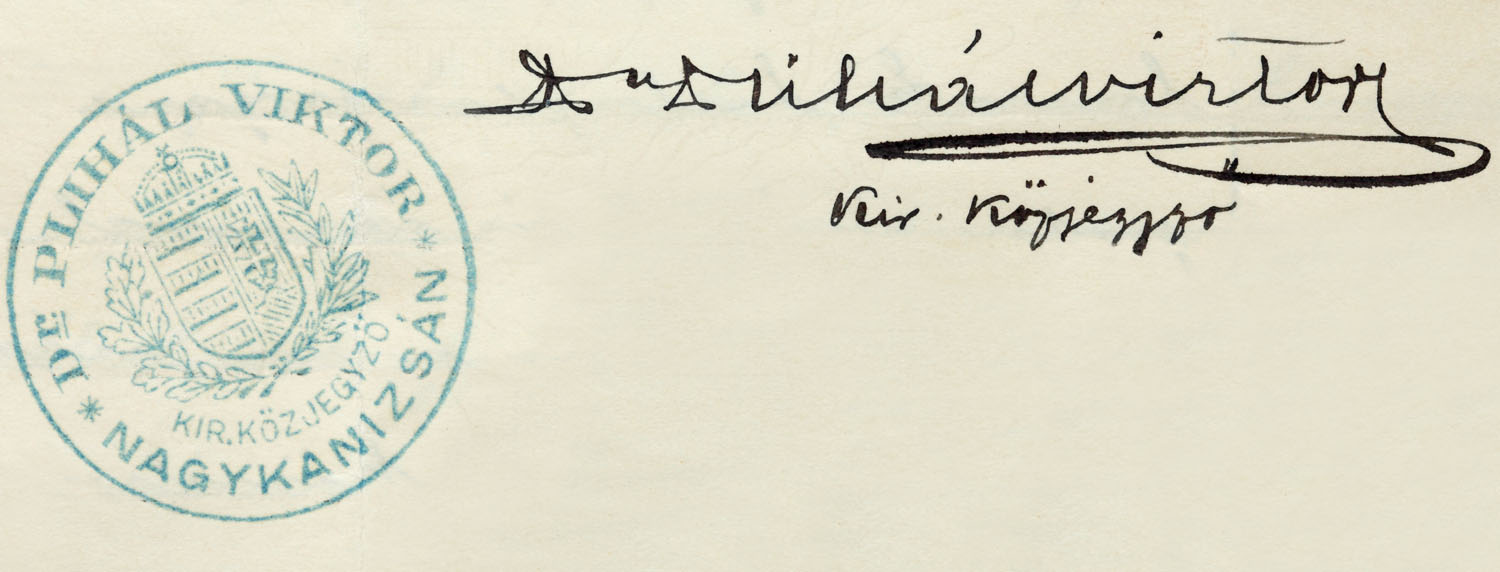 Dr. PLIHÁL VIKTOR
KIR. KÖZJEGYZŐ
NAGYKANIZSÁN
Dr Plihál Viktor
Kir. Közjegyző